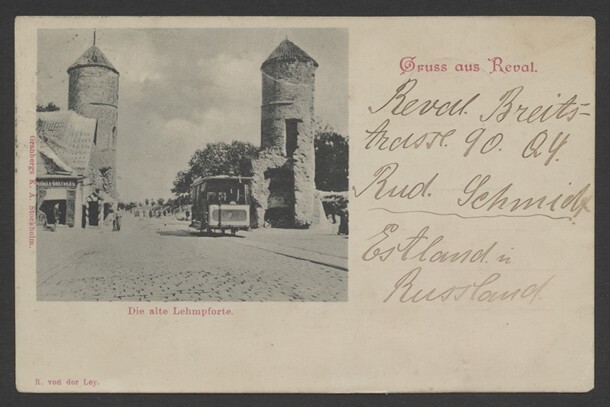 Gruss aus Reval.
Reval. Breits-
trasse. 90. Q4.
Rud. Schmidt
Estland. in
Russland.
Granbergs K. A. Stockholm.
Die alte Lehmpforte.
R. von der Ley.